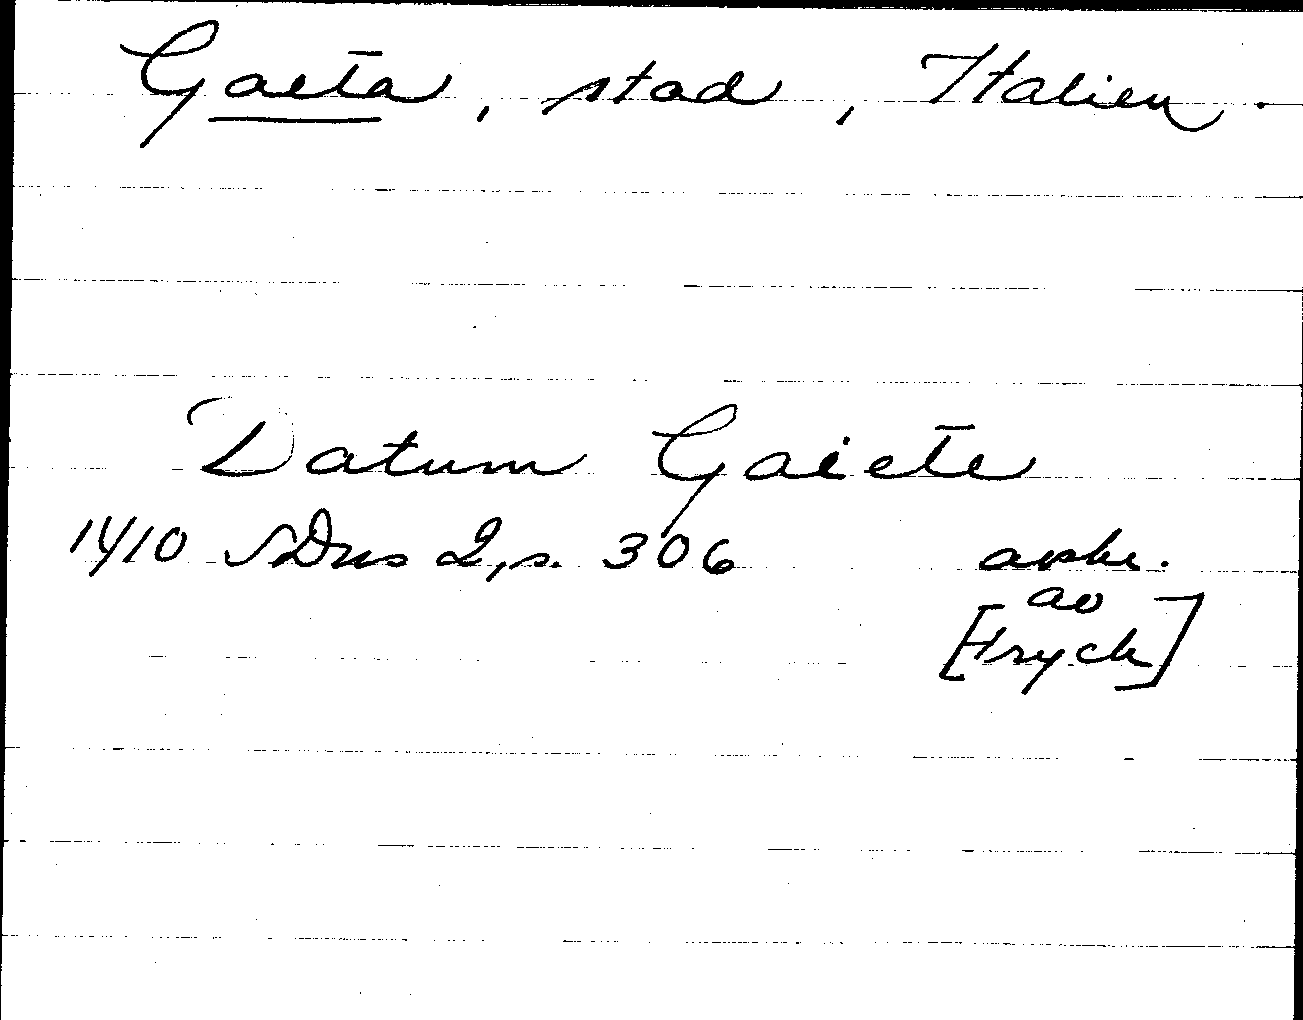 Gaeta, stad, Italien.
Datum Gaiete
1410 SDns 2, s. 306 avskr.
av
[tryck]